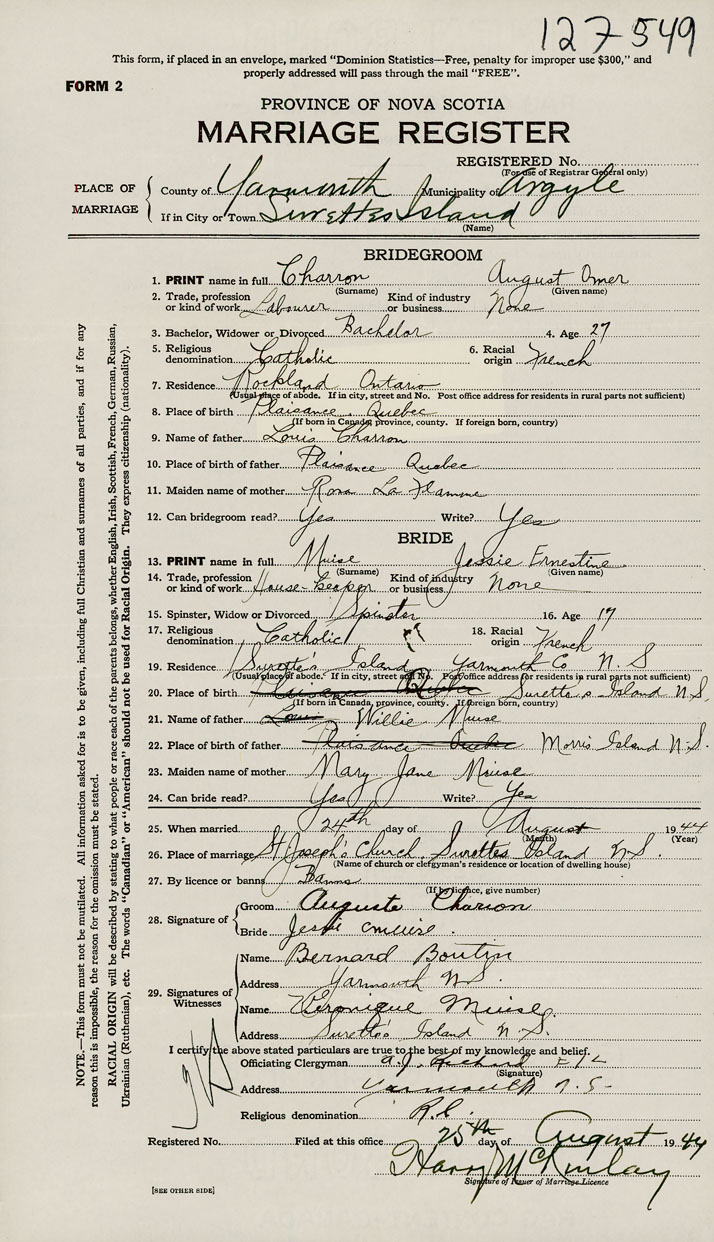 127549
This form, if placed in an envelope, marked "Dominion Statistics—Free, penalty for improper use $300," and
properly addressed will pass through the mail "FREE".
FORM 2
PROVINCE OF NOVA SCOTIA
MARRIAGE REGISTER
REGISTERED No.
(For use of Registrar General only)
PLACE OF MARRIAGE
County of Yarmouth Municipality of Argyle
If in City or Town Surettes Island
(Name)
BRIDEGROOM
1. PRINT name in full Charron August Omer
(Surname) (Given name)
2. Trade, profession or kind of work Labourer Kind of industry or business None
3. Bachelor, Widower or Divorced Bachelor 4. Age 27
5. Religious denomination Catholic 6. Racial origin French
7. Residence Rockland Ontario
(Usual place of abode. If in city, street and No. Post office address for residents in rural parts not sufficient)
8. Place of birth Plaisance Quebec
(If born in Canada, province, county. If foreign born, country)
9. Name of father Louis Charron
10. Place of birth of father Plaisance Quebec
11. Maiden name of mother Rosa La Flamme
12. Can bridegroom read? Yes Write? Yes
BRIDE
13. PRINT name in full Muise Jessie Ernestine
(Surname) (Given name)
14. Trade, profession or kind of work House-keeper Kind of industry or business None
15. Spinster, Widow or Divorced Spinster 16. Age 17
17. Religious denomination Catholic 18. Racial origin French
19. Residence Surette's Island Yarmouth Co N.S
(Usual place of abode. If in city, street and No. Post office address for residents in rural parts not sufficient)
20. Place of birth Plaisance Quebec Surette's Island N.S.
(If born in Canada, province, county. If foreign born, country)
21. Name of father Louis Willie Muise
22. Place of birth of father Plaisance Quebec Morris Island N.S.
23. Maiden name of mother Mary Jane Muise
24. Can bride read? Yes Write? Yes
25. When married 24th day of August 1944
(Month) (Year)
26. Place of marriage St Joseph's Church, Surettes Island N.S.
(Name of church or clergyman's residence or location of dwelling house)
27. By licence or banns Banns
(If by licence, give number)
28. Signature of
Groom Auguste Charron
Bride Jessie Muise.
29. Signatures of Witnesses
Name Bernard Boutin
Address Yarmouth N.S.
Name Véronique Muise
Address Surette's Island N.S.
I certify the above stated particulars are true to the best of my knowledge and belief.
Officiating Clergyman
(Signature)
Address Yarmouth N.S.
Religious denomination R.C.
Registered No. Filed at this office 25th day of August 1944
Harry McKinlay
Signature of Issuer of Marriage Licence
[SEE OTHER SIDE]
NOTE.—This form must not be mutilated. All information asked for is to be given, including full Christian and surnames of all parties, and if for any
reason this is impossible, the reason for the omission must be stated.
RACIAL ORIGIN will be described by stating to what people or race each of the parents belongs, whether English, Irish, Scottish, French, German, Russian,
Ukrainian (Ruthenian), etc. The words "Canadian" or "American" should not be used for Racial Origin. They express citizenship (nationality).